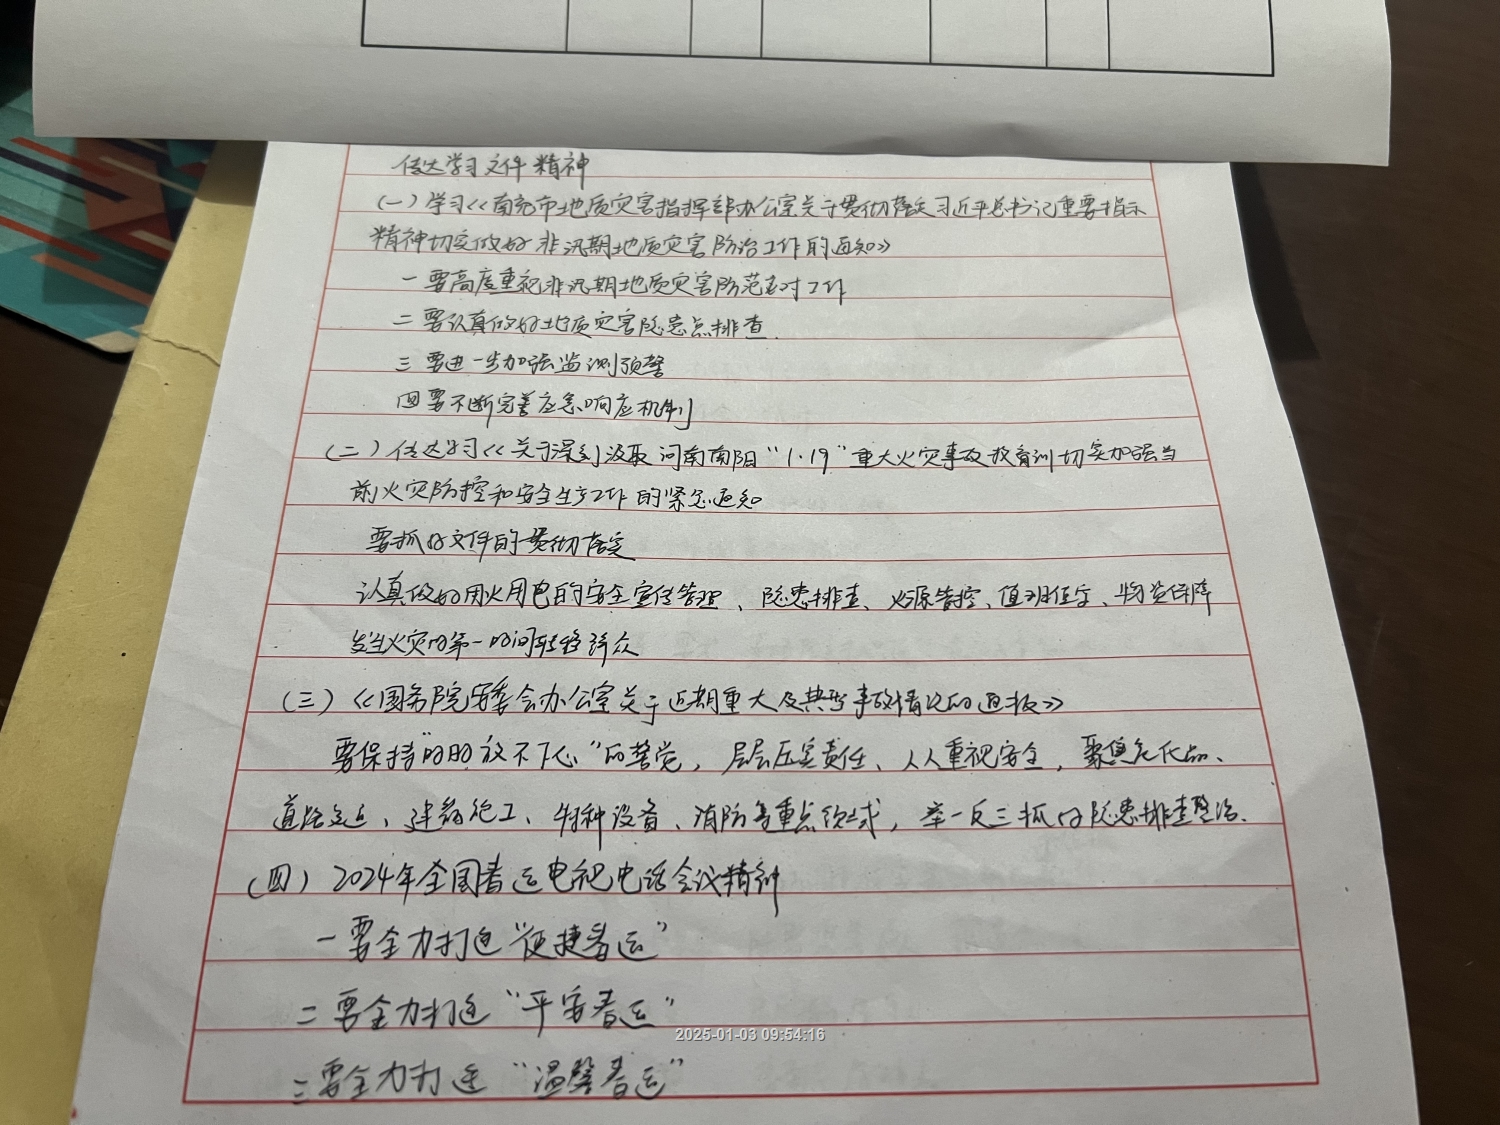 传达学习文件精神
(一)学习《南充市地质灾害指挥部办公室关于贯彻落实习近平总书记重要指示
精神切实做好非汛期地质灾害防治工作的通知》
一要高度重视非汛期地质灾害防范应对工作
二要认真做好地质灾害隐患点排查.
三要进一步加强监测预警
四要不断完善应急响应机制
(二)传达学习《关于深刻汲取河南南阳"1·19"重大火灾事故教育训切实加强当
前火灾防控和安全生产工作的紧急通知
要抓好文件的贯彻落实
认真做好用火用电的安全宣传管理、隐患排查、火源管控、值班值守、物资保障
发生火灾的第一时间转移群众
(三)《国务院安委会办公室关于近期重大及典型事故情况的通报》
要保持"时时放不下心"的警觉,层层压实责任、人人重视安全,聚焦危化品、
道路交通、建筑施工、特种设备、消防等重点领域,举一反三抓好隐患排查整治.
(四)2024年全国春运电视电话会议精神
一要全力打造"便捷春运"
二要全力打造"平安春运"
2025-01-03 09:54:16
三要全力打造"温馨春运"